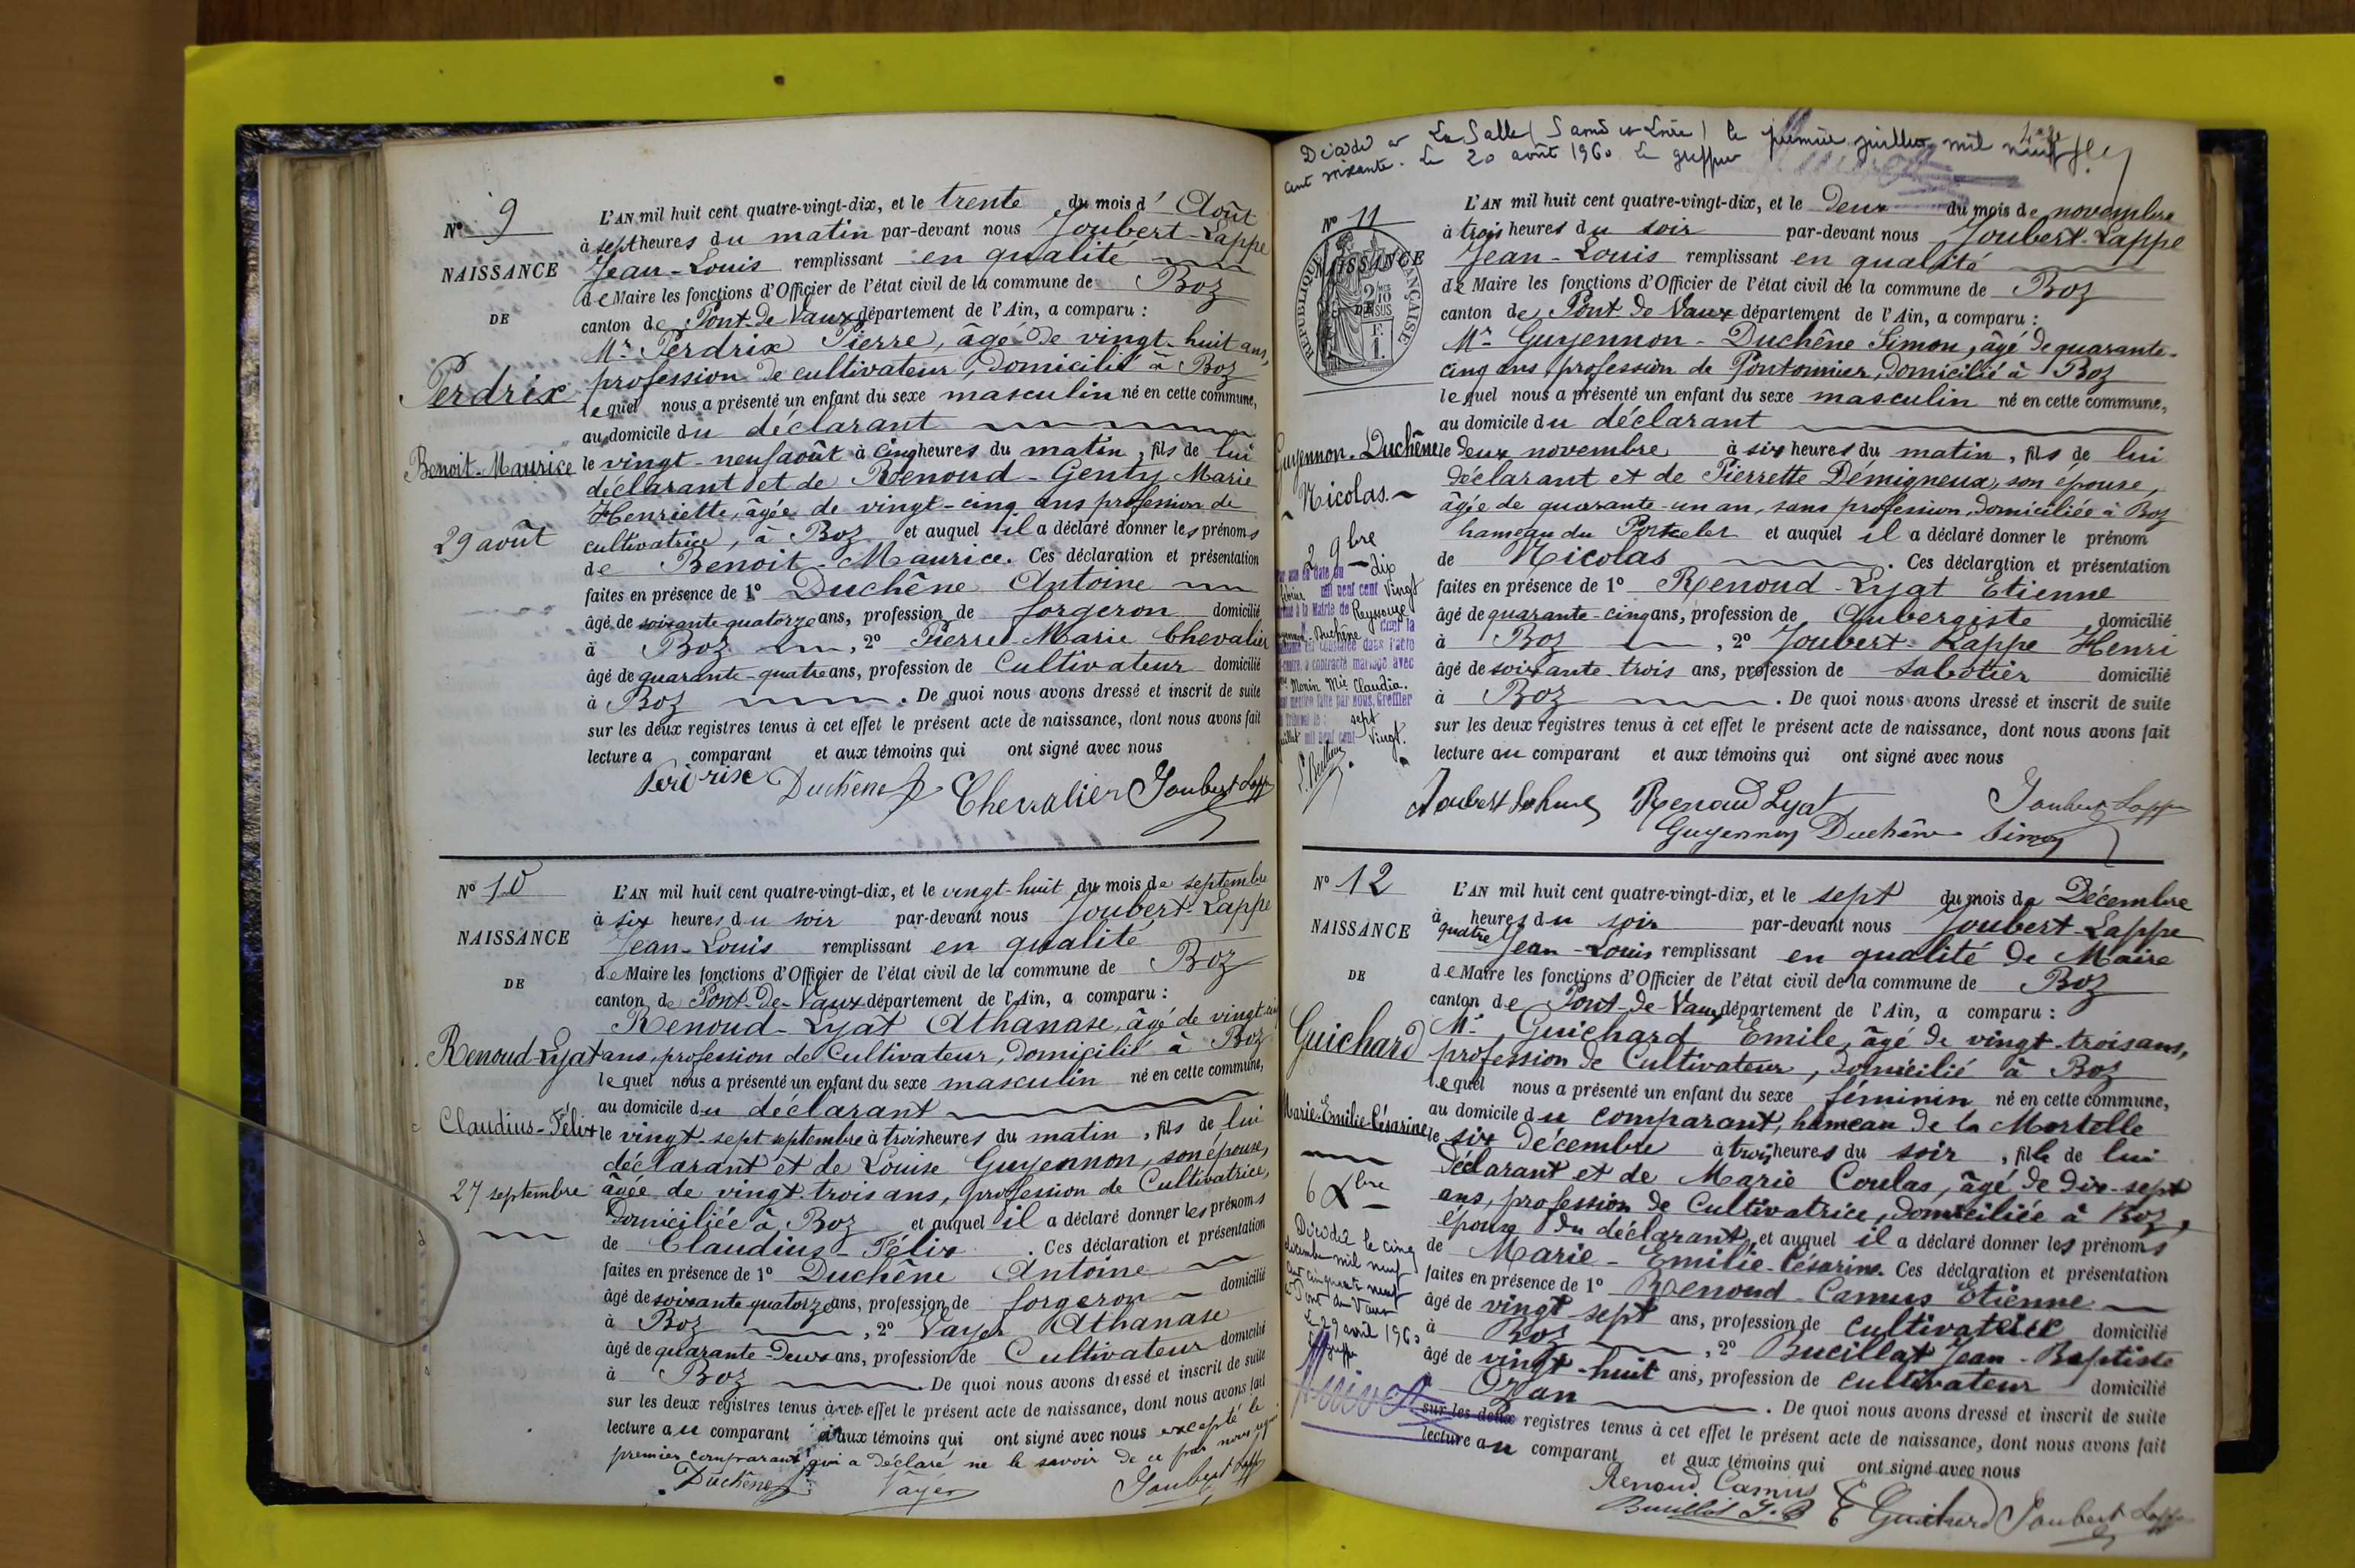 N° 9
NAISSANCE
DE
Perdrix
Benoit-Maurice
29 août
L'AN mil huit cent quatre-vingt-dix, et le trente du mois d' Août
à sept heures du matin par-devant nous Joubert-Lappe
Jean-Louis remplissant en qualité
de Maire les fonctions d'Officier de l'état civil de la commune de Boz
canton de Pont-de-Vaux département de l'Ain, a comparu :
Mr Perdrix Pierre, âgé de vingt-huit ans,
profession de cultivateur, domicilié à Boz
lequel nous a présenté un enfant du sexe masculin né en cette commune,
au domicile du déclarant
le vingt-neuf août à cinq heures du matin, fils de lui
déclarant et de Renoud-Genty Marie
Henriette, âgée de vingt-cinq ans profession de
cultivatrice, à Boz et auquel il a déclaré donner les prénoms
de Benoit-Maurice. Ces déclaration et présentation
faites en présence de 1° Duchêne Antoine
âgé de soixante-quatorze ans, profession de forgeron domicilié
à Boz, 2° Pierre-Marie Chevalier
âgé de quarante-quatre ans, profession de Cultivateur domicilié
à Boz. De quoi nous avons dressé et inscrit de suite
sur les deux registres tenus à cet effet le présent acte de naissance, dont nous avons fait
lecture a comparant et aux témoins qui ont signé avec nous
Perdrix Duchêne Chevalier Joubert Lappe
N° 10
NAISSANCE
DE
Renoud-Lyat
Claudius-Félix
27 septembre
L'AN mil huit cent quatre-vingt-dix, et le vingt-huit du mois de septembre
à six heures du soir par-devant nous Joubert-Lappe
Jean-Louis remplissant en qualité
de Maire les fonctions d'Officier de l'état civil de la commune de Boz
canton de Pont-de-Vaux département de l'Ain, a comparu :
Renoud-Lyat Athanase, âgé de vingt-six
ans, profession de Cultivateur, domicilié à Boz
lequel nous a présenté un enfant du sexe masculin né en cette commune,
au domicile du déclarant
le vingt-sept septembre à trois heures du matin, fils de lui
déclarant et de Louise Guyennon, son épouse,
âgée de vingt-trois ans, profession de Cultivatrice,
domiciliée à Boz et auquel il a déclaré donner les prénoms
de Claudius-Félix. Ces déclaration et présentation
faites en présence de 1° Duchêne Antoine
âgé de soixante quatorze ans, profession de forgeron domicilié
à Boz, 2° Vayer Athanase
âgé de quarante-deux ans, profession de Cultivateur domicilié
à Boz. De quoi nous avons dressé et inscrit de suite
sur les deux registres tenus à cet effet le présent acte de naissance, dont nous avons fait
lecture au comparant et aux témoins qui ont signé avec nous excepté le
premier comparant qui a déclaré ne le savoir de ce par nous
Duchêne Vayer Joubert Lappe
Décédé à La Salle (Saône et Loire) le premier juillet mil neuf
cent soixante. Le 20 août 1960 Le greffier
N° 11
NAISSANCE
DE
RÉPUBLIQUE FRANÇAISE
2/10 EN SUS
F. 1.
Guyennon-Duchêne
Nicolas
2 9bre
dix
mil neuf cent vingt
à la Mairie de Reyssouze
Duchêne dont la
constatée dans l'acte
a contracté mariage avec
Monin Mie Claudia.
faite par nous, Greffier
sept
juillet mil neuf cent vingt.
L'AN mil huit cent quatre-vingt-dix, et le deux du mois de novembre
à trois heures du soir par-devant nous Joubert-Lappe
Jean-Louis remplissant en qualité
de Maire les fonctions d'Officier de l'état civil de la commune de Boz
canton de Pont de Vaux département de l'Ain, a comparu :
Mr Guyennon-Duchêne Simon, âgé de quarante-
cinq ans profession de Pontonnier, domicilié à Boz
lequel nous a présenté un enfant du sexe masculin né en cette commune,
au domicile du déclarant
le deux novembre à six heures du matin, fils de lui
déclarant et de Pierrette Démigneux, son épouse,
âgée de quarante-un an, sans profession, domiciliée à Boz
hameau du et auquel il a déclaré donner le prénom
de Nicolas. Ces déclaration et présentation
faites en présence de 1° Renoud-Lyat Etienne
âgé de quarante-cinq ans, profession de Aubergiste domicilié
à Boz, 2° Joubert-Lappe Henri
âgé de soixante-trois ans, profession de sabotier domicilié
à Boz. De quoi nous avons dressé et inscrit de suite
sur les deux registres tenus à cet effet le présent acte de naissance, dont nous avons fait
lecture au comparant et aux témoins qui ont signé avec nous
Joubert Renoud Lyat Joubert Lappe
Guyennon Duchêne Simon
N° 12
NAISSANCE
DE
Guichard
Marie-Emilie-Césarine
6 Xbre
Décédée le cinq
décembre mil neuf
cent cinquante neuf
à Pont de Vaux
Le 29 avril 1960
L'AN mil huit cent quatre-vingt-dix, et le sept du mois de Décembre
à quatre heures du soir par-devant nous Joubert-Lappe
Jean-Louis remplissant en qualité de Maire
de Maire les fonctions d'Officier de l'état civil de la commune de Boz
canton de Pont-de-Vaux département de l'Ain, a comparu :
Mr Guichard Emile, âgé de vingt-trois ans,
profession de Cultivateur, domicilié à Boz
lequel nous a présenté un enfant du sexe féminin né en cette commune,
au domicile du comparant, hameau de la Mortelle
le six décembre à trois heures du soir, fille de lui
déclarant et de Marie Coulas, âgé de dix-sept
ans, profession de Cultivatrice, domiciliée à Boz,
épouse du déclarant, et auquel il a déclaré donner les prénoms
de Marie-Emilie-Césarine. Ces déclaration et présentation
faites en présence de 1° Renoud-Camus Etienne
âgé de vingt sept ans, profession de cultivateur domicilié
à Boz, 2° Bucillat Jean-Baptiste
âgé de vingt-huit ans, profession de cultivateur domicilié
à Ozan. De quoi nous avons dressé et inscrit de suite
sur les deux registres tenus à cet effet le présent acte de naissance, dont nous avons fait
lecture au comparant et aux témoins qui ont signé avec nous
Renoud Camus
Bucillat J-B E Guichard Joubert Lappe